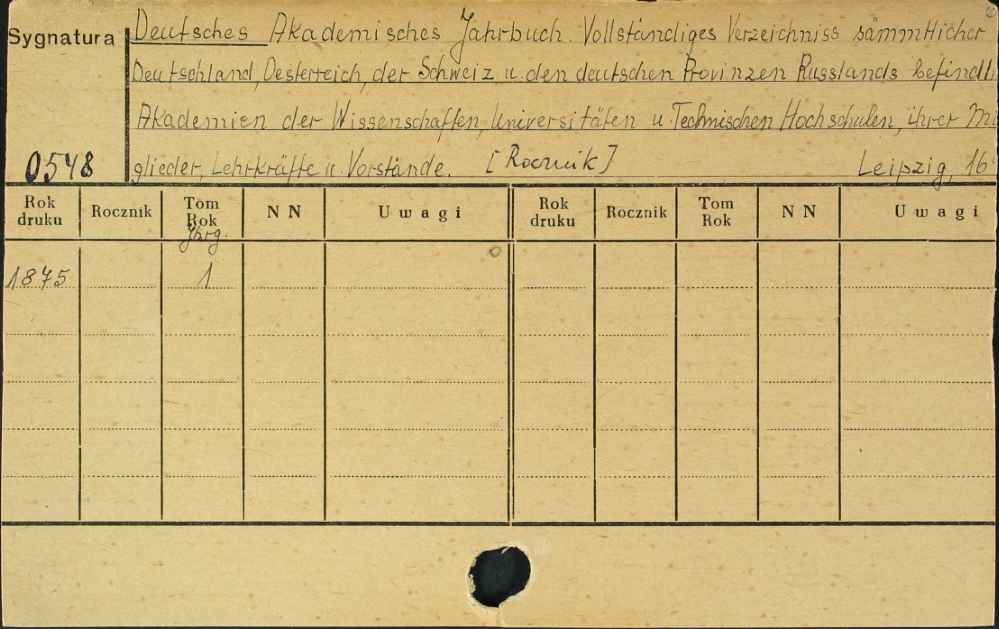 Sygnatura
Deutsches Akademisches Jahrbuch. Vollständiges Verzeichniss sämmtlicher
Deutschland, Oesterreich, der Schweiz u. den deutschen Provinzen Russlands befindl
Akademien der Wissenschaften, Universitäten u. Technischen Hochschulen, ihrer M
0548
glieder, Lehrkräfte u. Vorstände. [Rocznik] Leipzig, 16
Rok druku Rocznik Tom Rok NN Uwagi Rok druku Rocznik Tom Rok NN Uwagi
Jhrg.
1875 1